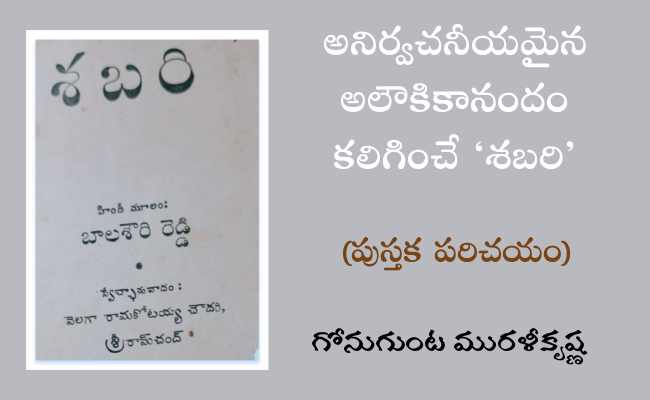 శబరి
హిందీ మూలం:
బాలశౌరి రెడ్డి
*
స్వేచ్ఛానువాదం :
వెలగా రామకోటయ్య చౌదరి,
శ్రీరామ్‌చంద్
అనిర్వచనీయమైన
అలౌకికానందం
కలిగించే ‘శబరి’
(పుస్తక పరిచయం)
గోనుగుంట మురళీకృష్ణ